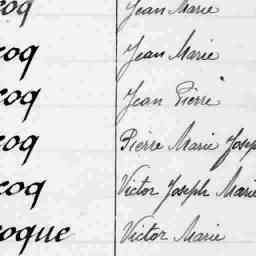 coq Jean Marie
coq Jean Marie
coq Jean Pierre
coq Pierre Marie Josep
coq Victor Joseph Marie
oque Victor Marie